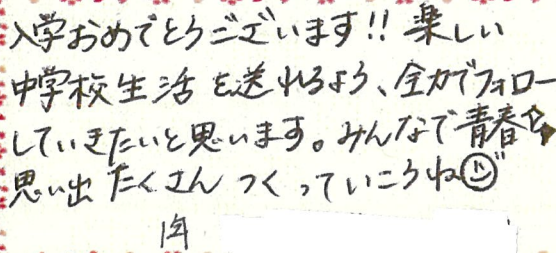 入学おめでとうございます!! 楽しい
中学校生活を送れるよう、全力でフォロー
していきたいと思います。みんなで青春を
思い出たくさんつくっていこうね☺
1年